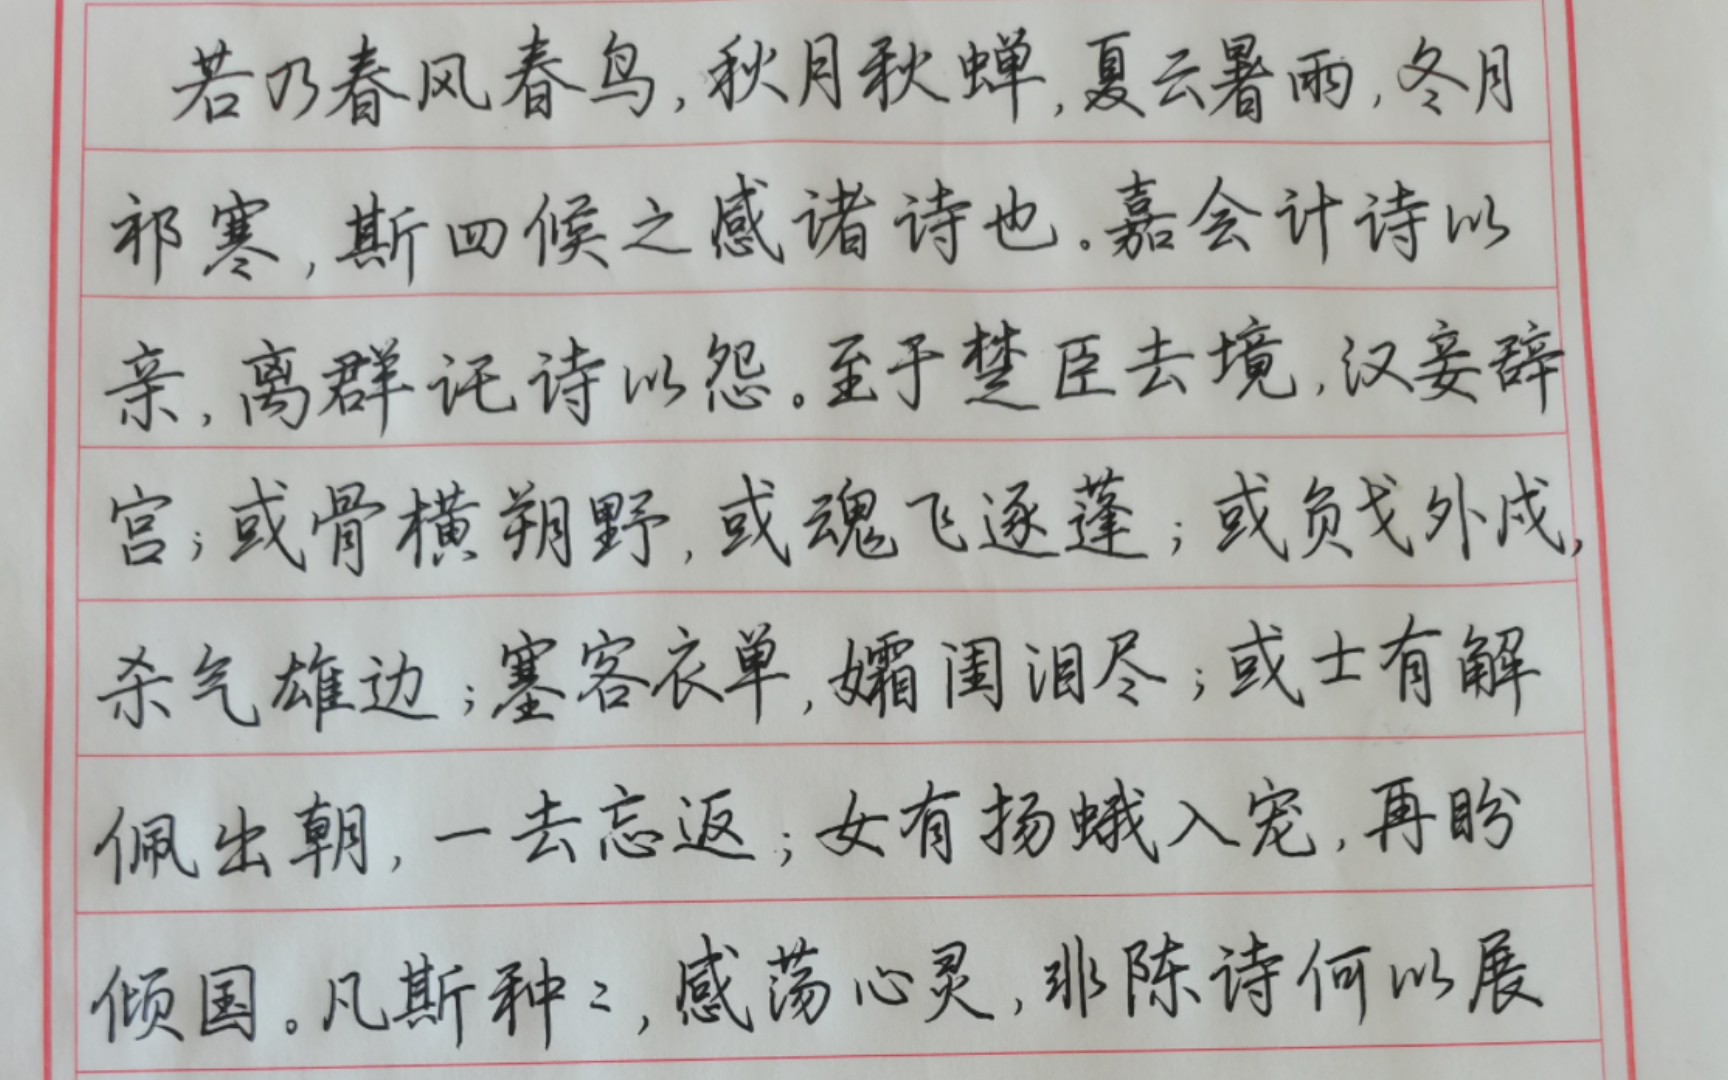 若乃春风春鸟,秋月秋蝉,夏云暑雨,冬月
祁寒,斯四候之感诸诗也。嘉会计诗以
亲,离群讬诗以怨。至于楚臣去境,汉妾辞
宫;或骨横朔野,或魂飞逐蓬;或负戈外戍,
杀气雄边;塞客衣单,孀闺泪尽;或士有解
佩出朝,一去忘返;女有扬蛾入宠,再盼
倾国。凡斯种々,感荡心灵,非陈诗何以展